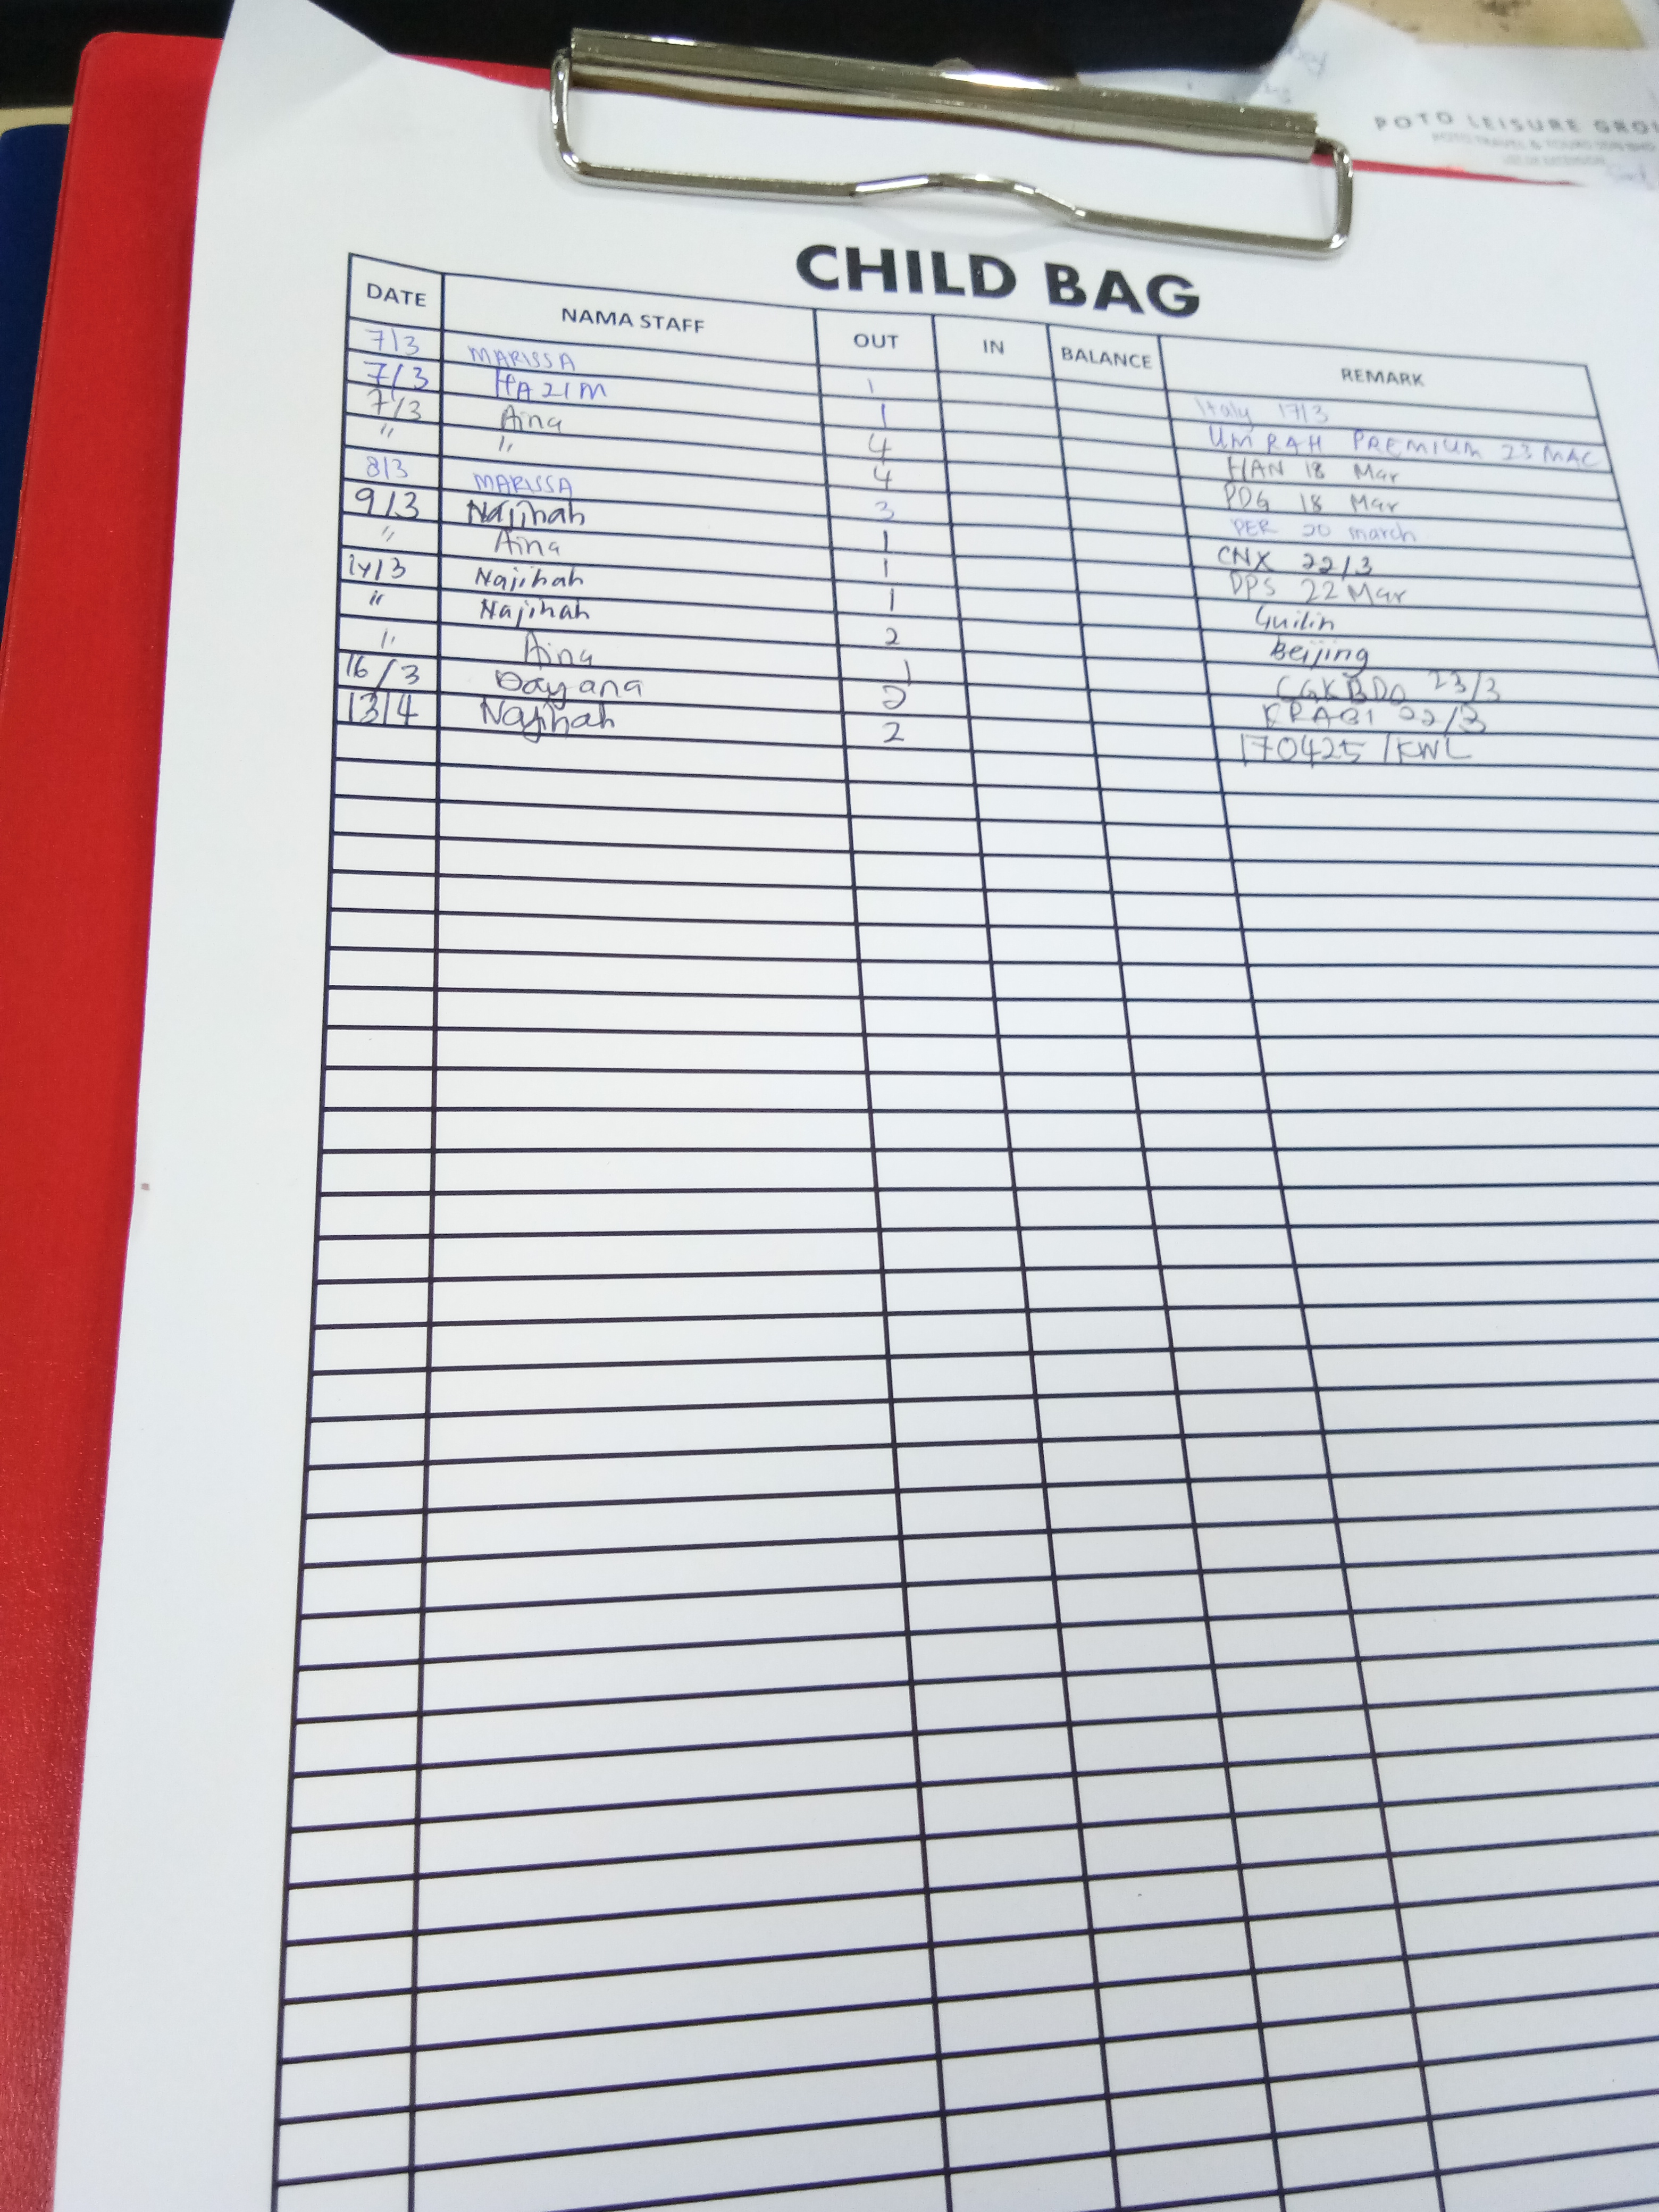 POTO LEISURE GROU
CHILD BAG
DATE NAMA STAFF OUT IN BALANCE REMARK
7/3 MARISSA 1 Italy 17/3
7/3 HAZIM 1 UMRAH PREMIUM 23 MAC
7/3 Aina 4 HAN 18 Mar
" " 4 PDG 18 Mar
8/3 MARISSA 3 PER 20 march
9/3 Najihah 1 CNX 22/3
" Aina 1 DPS 22 Mar
14/3 Najihah 1 Guilin
" Najihah 2 Beijing
" Aina 1 CGKBDO 23/3
16/3 Dayana 2 KRABI 22/3
13/4 Najihah 2 170425/KWL